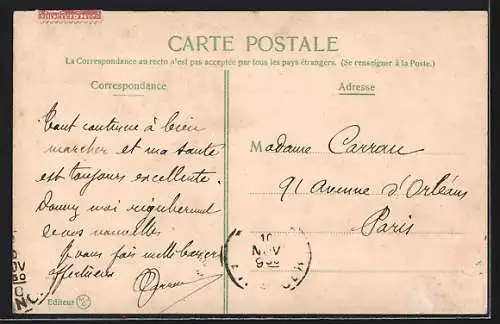 CARTE POSTALE
La Correspondance au recto n'est pas acceptée par tous les pays étrangers. (Se renseigner à la Poste.)
Correspondance
Tout continue à bien
marcher et ma santé
est toujours excellente.
Donnez moi régulièrement
de vos nouvelles
Je vous fais mille baisers
affectueux
Editeur
Adresse
Madame Carrau
91 Avenue d'Orléans
Paris
10
NOV